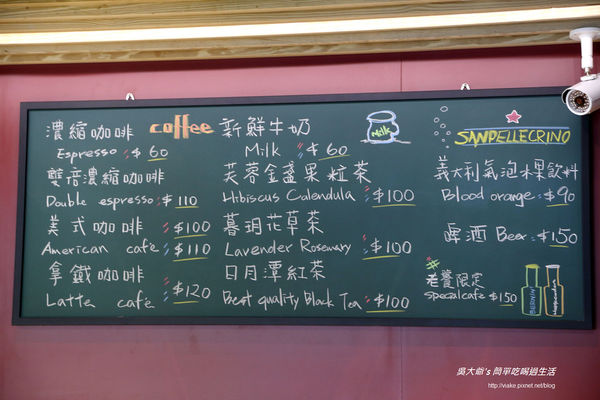 濃縮咖啡 coffee
Espresso : $60
雙倍濃縮咖啡
Double espresso : $110
美式咖啡 : $100
American café : $110
拿鐵咖啡
Latte café : $120
新鮮牛奶
Milk : $60
Milk
芙蓉金盞果粒茶
Hibiscus Calendula : $100
暮玥花草茶
Lavender Rosemary : $100
日月潭紅茶
Best quality Black Tea : $100
SANPELLECRINO
義大利氣泡水果飲料
Blood orange : $90
啤酒 Beer : $150
老饕限定
specal cafe $150
吳大爺's 簡單吃喝過生活
http://viake.pixnet.net/blog